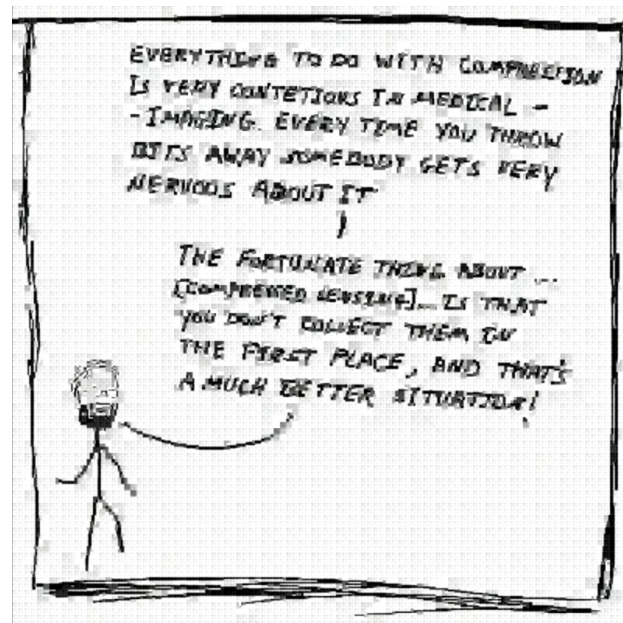 EVERYTHING TO DO WITH COMPRESSION
IS VERY CONTETIOUS IN MEDICAL -
- IMAGING. EVERY TIME YOU THROW
BITS AWAY SOMEBODY GETS VERY
NERVOUS ABOUT IT
THE FORTUNATE THING ABOUT ...
[COMPRESSED SENSING]... IS THAT
YOU DON'T COLLECT THEM IN
THE FIRST PLACE, AND THAT'S
A MUCH BETTER SITUATION!